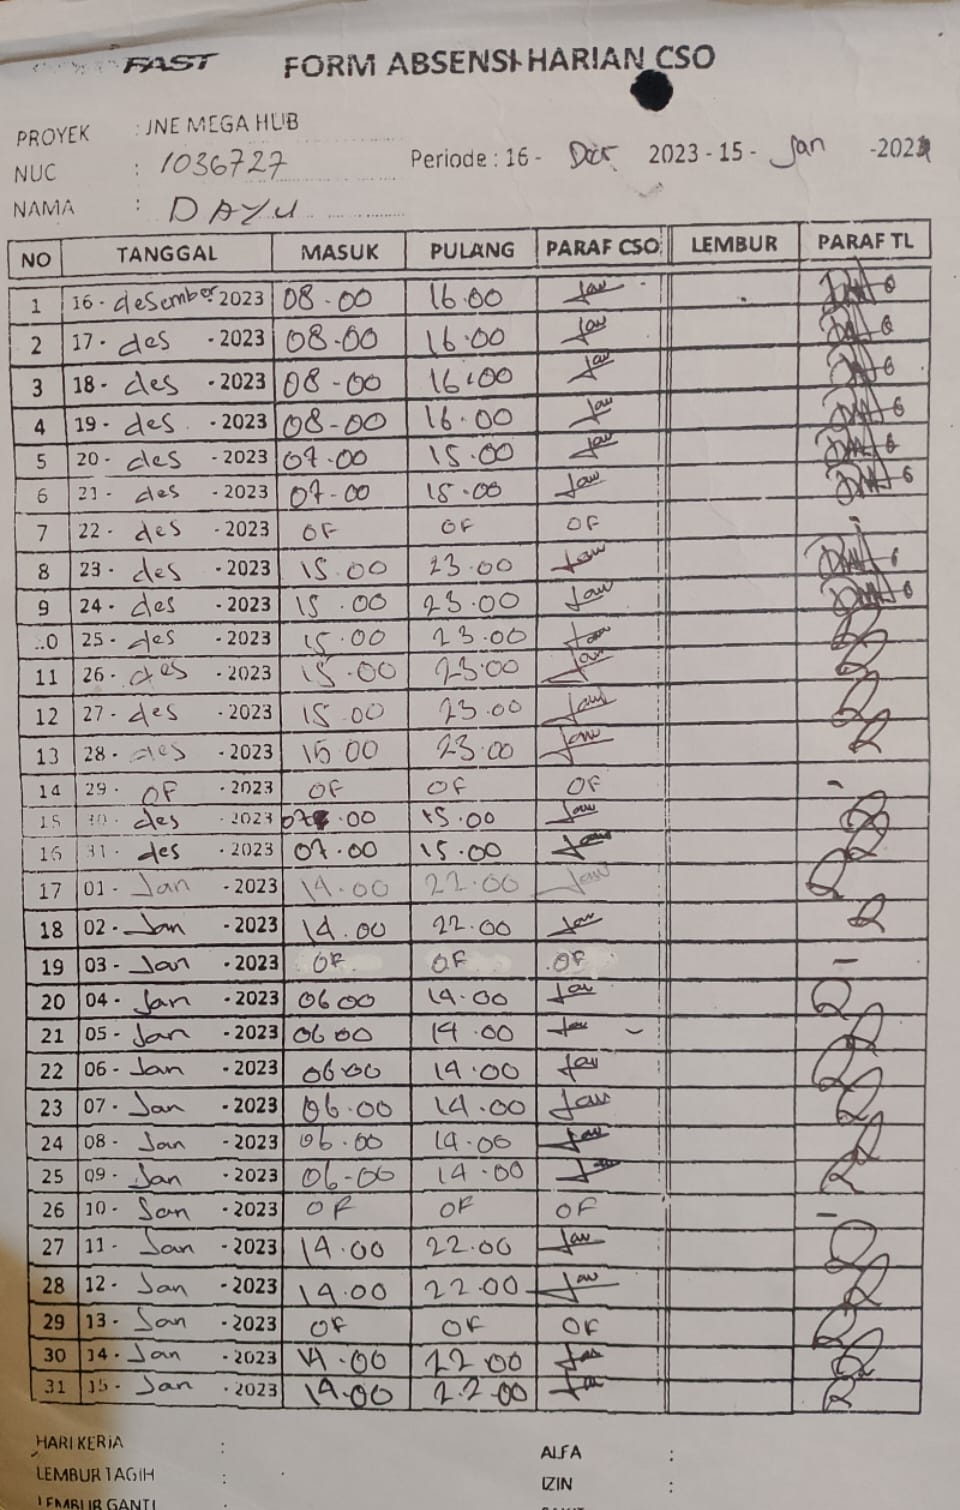 FAST FORM ABSENSI HARIAN CSO
PROYEK : JNE MEGA HUB
NUC : 1036727 Periode : 16 - Des 2023 - 15 - Jan - 2024
NAMA : DAYU
NO TANGGAL MASUK PULANG PARAF CSO LEMBUR PARAF TL
1 16 - desember 2023 08-00 16.00
2 17 - des - 2023 08-00 16.00
3 18 - des - 2023 08-00 16:00
4 19 - des - 2023 08-00 16.00
5 20 - des - 2023 07.00 15.00
6 21 - des - 2023 07-00 15.00
7 22 - des - 2023 OF OF OF
8 23 - des - 2023 15.00 23.00
9 24 - des - 2023 15.00 23.00
.0 25 - des - 2023 15.00 23.00
11 26 - des - 2023 15.00 23.00
12 27 - des - 2023 15.00 23.00
13 28 - des - 2023 15.00 23.00
14 29 - OF - 2023 OF OF OF -
15 30 - des - 2023 07.00 15.00
16 31 - des - 2023 07.00 15.00
17 01 - Jan - 2023 14.00 22.00
18 02 - Jan - 2023 14.00 22.00
19 03 - Jan - 2023 OF OF OF -
20 04 - Jan - 2023 06 00 14.00
21 05 - Jan - 2023 06 00 14.00
22 06 - Jan - 2023 06.00 14.00
23 07 - Jan - 2023 06.00 14.00
24 08 - Jan - 2023 06.00 14.00
25 09 - Jan - 2023 06-00 14.00
26 10 - Jan - 2023 OF OF OF -
27 11 - Jan - 2023 14.00 22.00
28 12 - Jan - 2023 14.00 22.00
29 13 - Jan - 2023 OF OF OF
30 14 - Jan - 2023 14.00 22 00
31 15 - Jan - 2023 14.00 22.00
HARI KERJA : ALFA :
LEMBUR TAGIH : IZIN :
LEMBUR GANTI